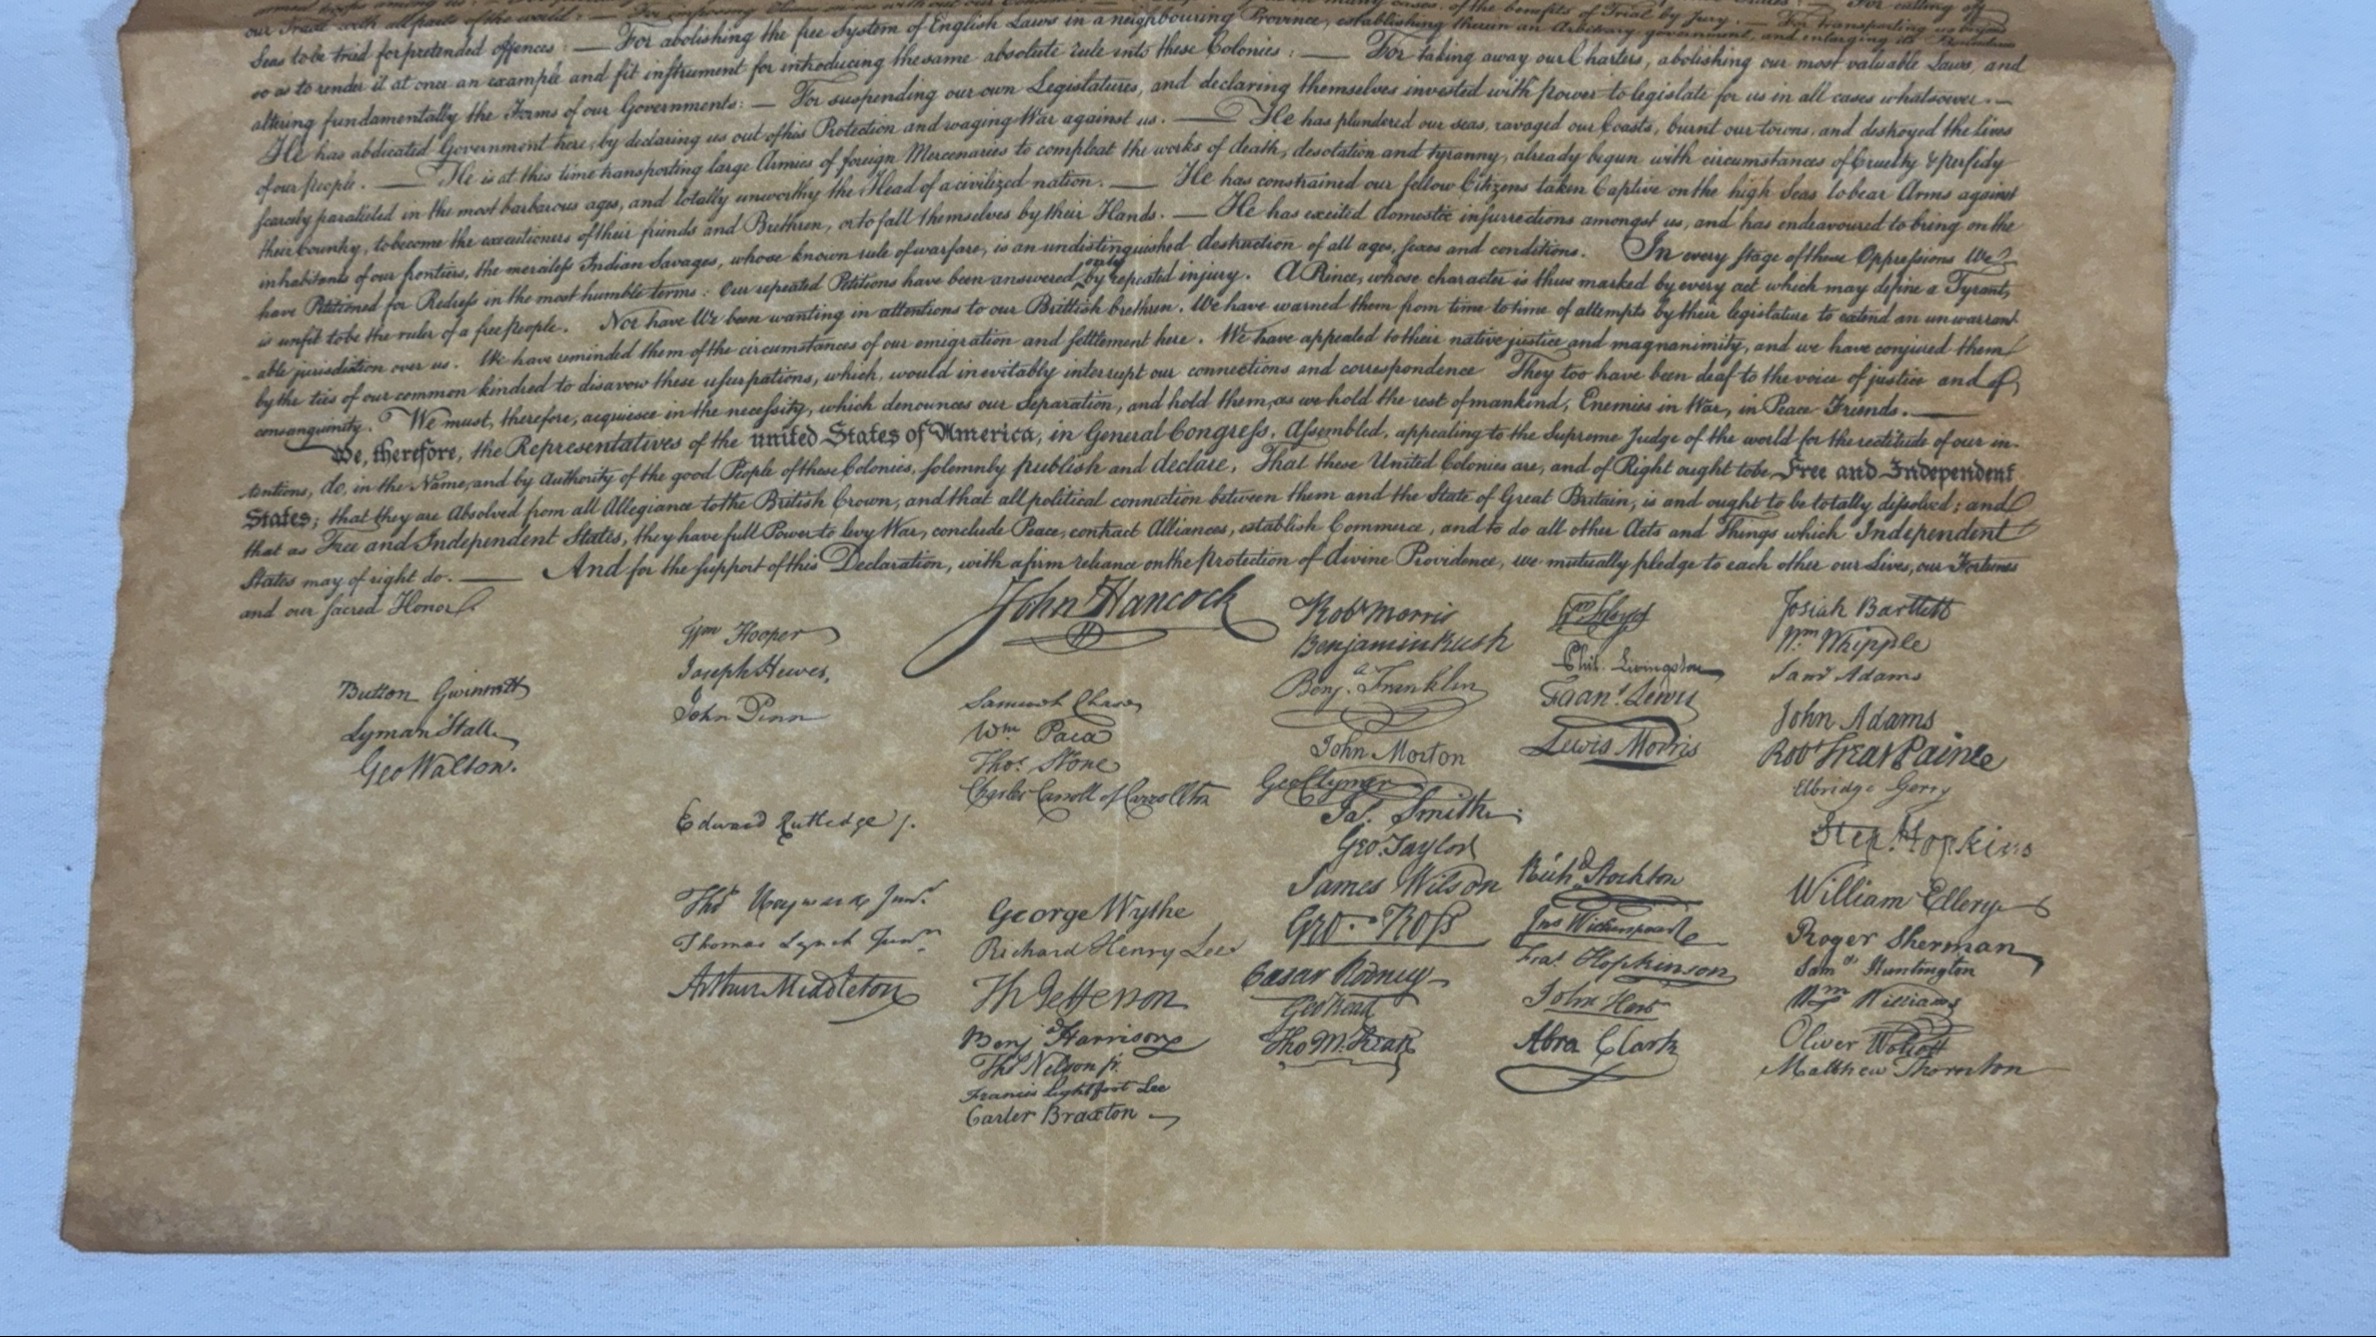 our Trade with all parts of the world : — For imposing Taxes on us without our Consent : — of the benefits of Trial by Jury : — For transporting us beyond
Seas to be tried for pretended offences : — For abolishing the free System of English Laws in a neighbouring Province, establishing therein an Arbitrary government, and enlarging its Boundaries
so as to render it at once an example and fit instrument for introducing the same absolute rule into these Colonies : — For taking away our Charters, abolishing our most valuable Laws, and
altering fundamentally the Forms of our Governments : — For suspending our own Legislatures, and declaring themselves invested with power to legislate for us in all cases whatsoever. —
He has abdicated Government here, by declaring us out of his Protection and waging War against us. — He has plundered our seas, ravaged our Coasts, burnt our towns, and destroyed the lives
of our people. — He is at this time transporting large Armies of foreign Mercenaries to compleat the works of death, desolation and tyranny, already begun with circumstances of Cruelty & perfidy
scarcely paralleled in the most barbarous ages, and totally unworthy the Head of a civilized nation. — He has constrained our fellow Citizens taken Captive on the high Seas to bear Arms against
their Country, to become the executioners of their friends and Brethren, or to fall themselves by their Hands. — He has excited domestic insurrections amongst us, and has endeavoured to bring on the
inhabitants of our frontiers, the merciless Indian Savages, whose known rule of warfare, is an undistinguished destruction of all ages, sexes and conditions. In every stage of these Oppressions We
have Petitioned for Redress in the most humble terms : Our repeated Petitions have been answered only by repeated injury. A Prince, whose character is thus marked by every act which may define a Tyrant,
is unfit to be the ruler of a free people. Nor have We been wanting in attentions to our Brittish brethren. We have warned them from time to time of attempts by their legislature to extend an unwarrant
-able jurisdiction over us. We have reminded them of the circumstances of our emigration and settlement here. We have appealed to their native justice and magnanimity, and we have conjured them
by the ties of our common kindred to disavow these usurpations, which, would inevitably interrupt our connections and correspondence They too have been deaf to the voice of justice and of
consanguinity. We must, therefore, acquiesce in the necessity, which denounces our Separation, and hold them, as we hold the rest of mankind, Enemies in War, in Peace Friends. —
We, therefore, the Representatives of the united States of America, in General Congress, Assembled, appealing to the Supreme Judge of the world for the rectitude of our in-
tentions, do, in the Name, and by Authority of the good People of these Colonies, solemnly publish and declare, That these United Colonies are, and of Right ought to be Free and Independent
States; that they are Absolved from all Allegiance to the British Crown, and that all political connection between them and the State of Great Britain, is and ought to be totally dissolved; and
that as Free and Independent States, they have full Power to levy War, conclude Peace, contract Alliances, establish Commerce, and to do all other Acts and Things which Independent
States may of right do. — And for the support of this Declaration, with a firm reliance on the protection of divine Providence, we mutually pledge to each other our Lives, our Fortunes
and our sacred Honor.
Button Gwinnett
Lyman Hall
Geo Walton.
Wm Hooper
Joseph Hewes,
John Penn
Edward Rutledge /.
Thos Heyward Junr.
Thomas Lynch Junr.
Arthur Middleton
John Hancock
Samuel Chase
Wm. Paca
Thos. Stone
Charles Carroll of Carrollton
George Wythe
Richard Henry Lee
Th Jefferson
Benj. Harrison
Thos Nelson jr.
Francis Lightfoot Lee
Carter Braxton
Robt Morris
Benjamin Rush
Benj. Franklin
John Morton
Geo Clymer
Jas. Smith.
Geo. Taylor
James Wilson
Geo. Ross
Caesar Rodney
Geo Read
Tho M:Kean
Wm Floyd
Phil. Livingston
Frans. Lewis
Lewis Morris
Richd. Stockton
Jno Witherspoon
Fras. Hopkinson
John Hart
Abra Clark
Josiah Bartlett
Wm. Whipple
Saml Adams
John Adams
Robt Treat Paine
Elbridge Gerry
Step. Hopkins
William Ellery
Roger Sherman
Samel Huntington
Wm. Williams
Oliver Wolcott
Matthew Thornton